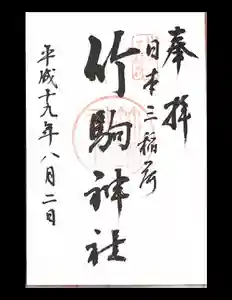 奉拝
日本三稲荷
竹駒神社
平成十九年八月二日